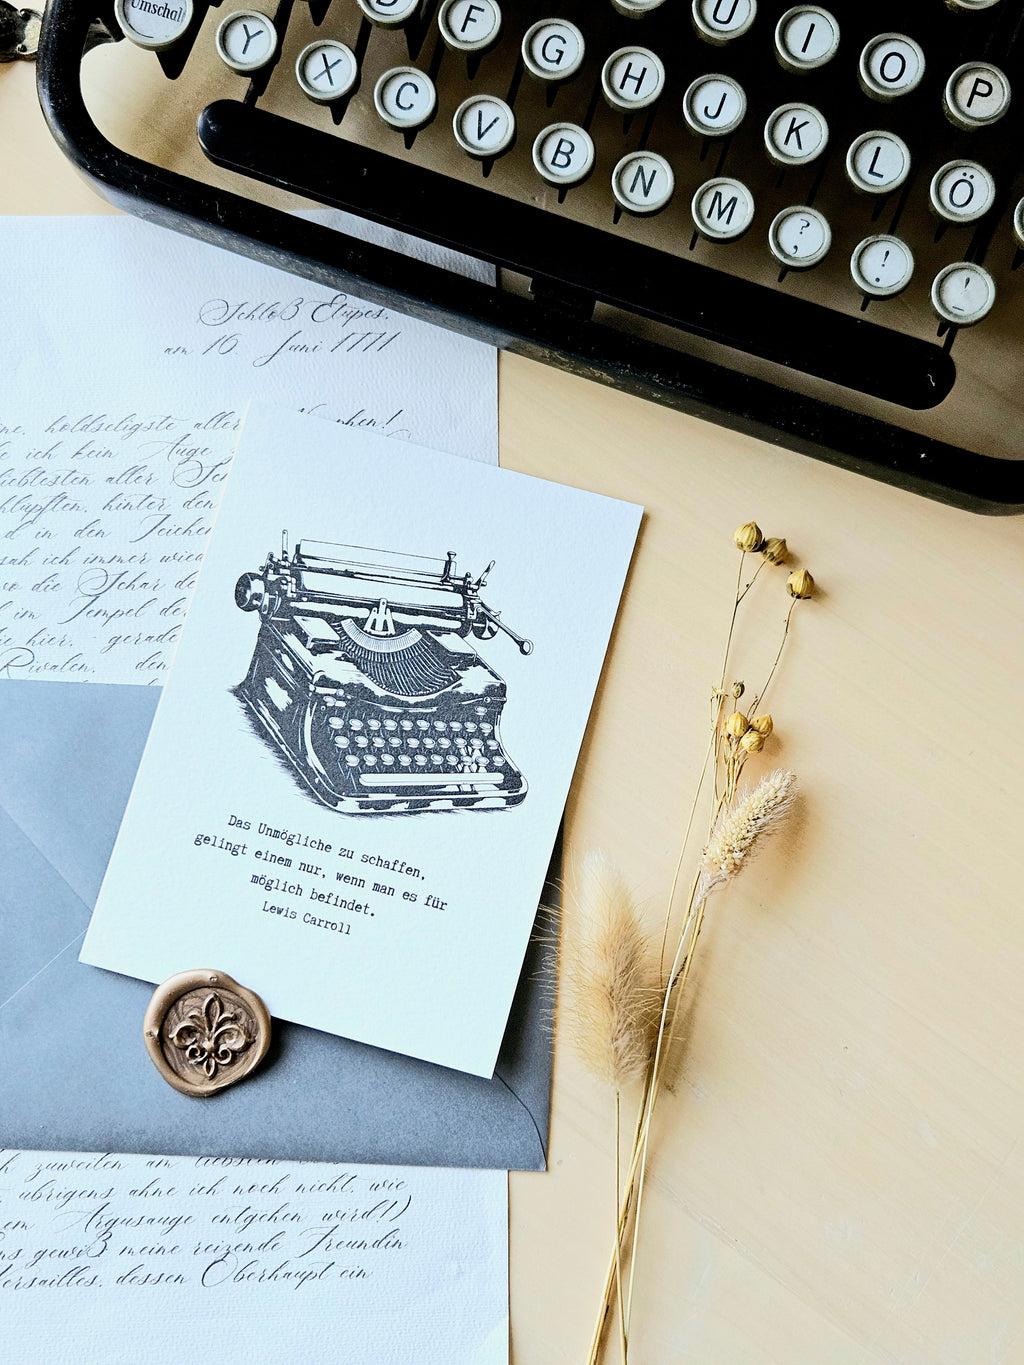 Umschal
D F G H J K L Ö
U I O P
Y X C V B N M ? , ! ' _
Schloß Etupes,
am 16. Juni 1771
holdseligste aller
ich kein Auge
liebtesten aller
hlüpften, hinter den
d in den Zeichen
sah ich immer wied
wo die Schar de
im Tempel de
ie hier, gerade
Rivalen, den
Das Unmögliche zu schaffen,
gelingt einem nur, wenn man es für
möglich befindet.
Lewis Carroll
zuweilen am liebsten
übrigens ahne ich noch nicht, wie
em Argusauge entgehen wird!)
ns gewiß meine reizende Freundin
ersailles, dessen Oberhaupt ein